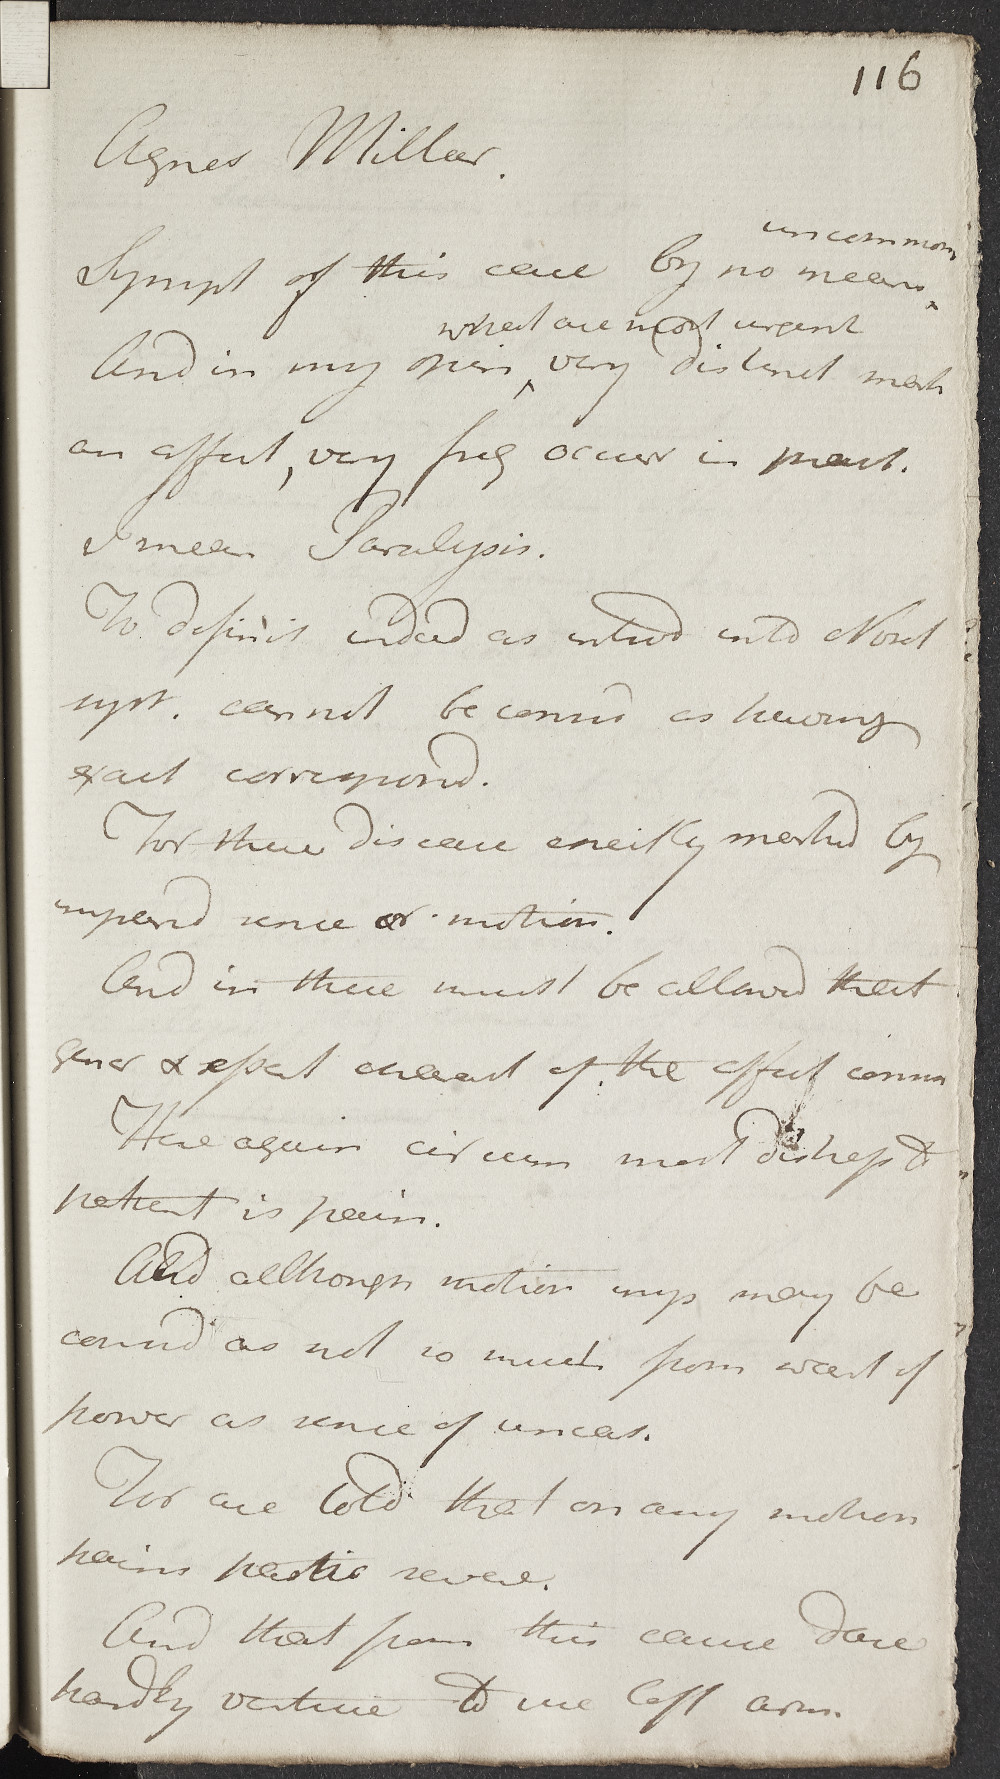 116
Agnes Millar.
uncommon
Sympt of this case by no means
what are most urgent
And in my opin very distinct mark
an affect, very freq occur in pract.
I mean Paralysis.
To definit indeed as introd into Nosol
syst. cannot be consid as having
exact correspond.
For these disease chiefly marked by
impaird sense or motion.
And in these must be allowed that
gener & charact of the affect
Here again circum most distress to
patient is pain.
And although motion imp may be
consid as not so much from want of
power as sense of uneas.
For are told that on any motion
pains partic severe.
And that from this cause dare
hardly venture to use left arm.